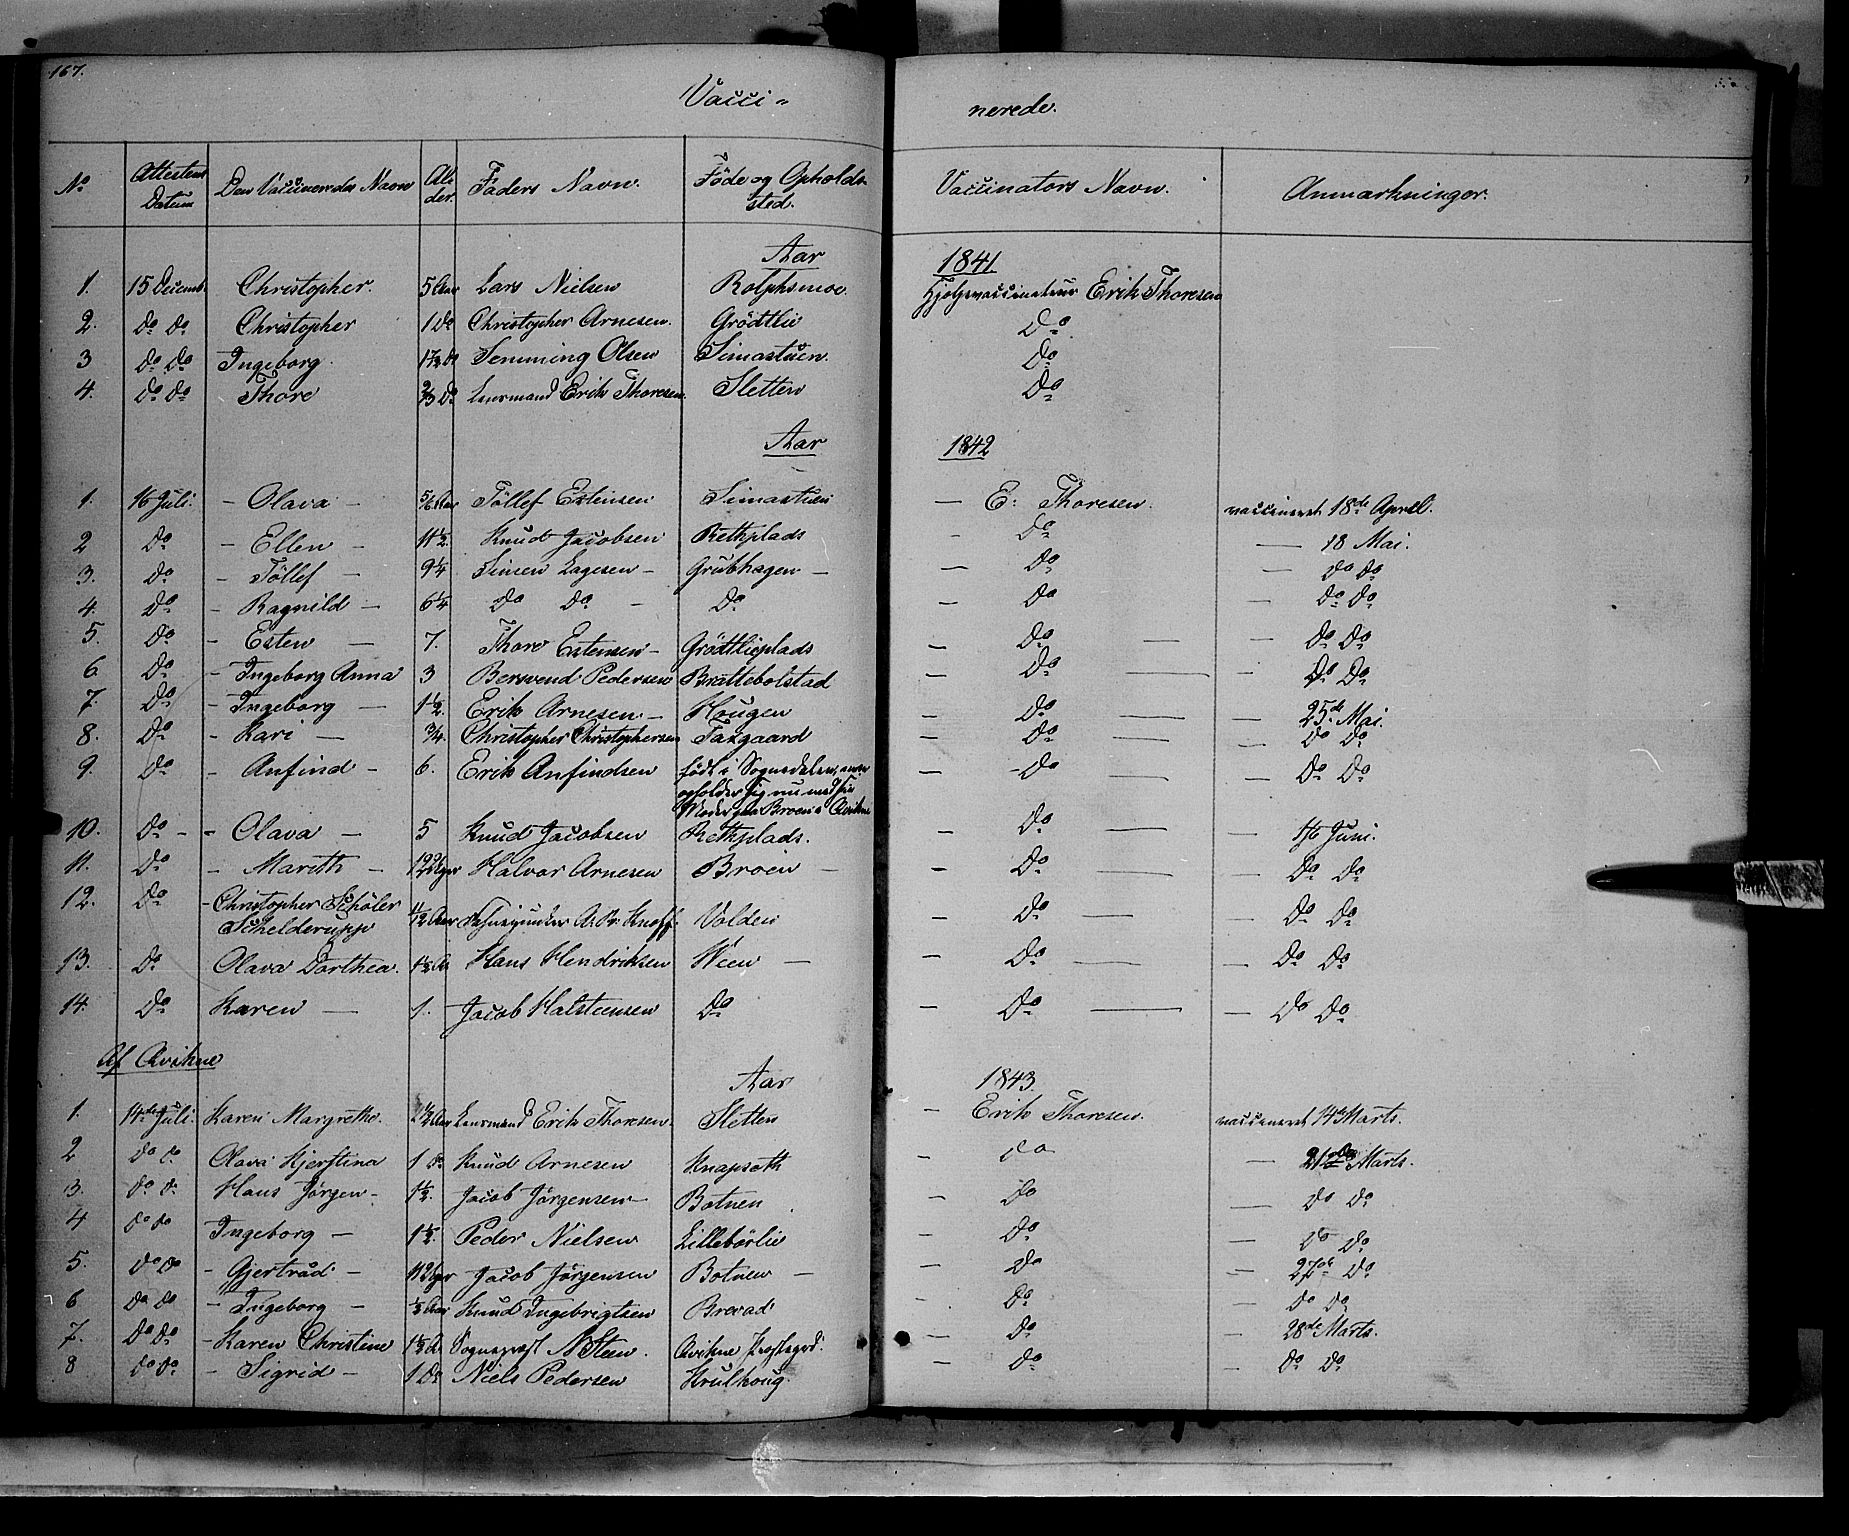 167.
Vacci- nerede.
No Attestens Datum Den Vaccineredes Navn Alder. Faders Navn. Føde og Opholdssted. Vaccinators Navn. Anmærkninger.
Aar 1841
1. 15 Decemb. Christopher. 5 Aar Lars Nielsen Rolphsmoe. Hjelpevaccinateur Erik Thoresen
2. Do Do Christopher 1 Do Christopher Arnesen. Grödtlie Do
3 Do Do Ingeborg. 1½ Do Semming Olsen Simastuen. Do
4. Do Do Thore Do Lensmand Erik Thoresen. Sletten Do
Aar 1842
1. 16 Juli. - Olava - 5/6 Aar Töllef Estensen Simastuen - E. Thoresen. vaccineret 18de April.
2 Do - Ellen - 11½ Knud Jacobsen Rethplads - Do - 18 Mai.
3. Do - Töllef - 9¼ Simen Lagesen - Grubhagen - - Do - Do Do
4. Do - Ragnild - 6¼ Do Do - Do - Do - Do Do
5. Do - Esten - 7. Thore Estensen - Grödtlieplads - Do - - Do Do
6. Do - Ingeborg Anna 3 Bersvend Pedersen Brattebolstad - Do - - Do Do
7. Do - Ingeborg - 1½. Erik Arnesen - Hougen - Do - - 25de Mai.
8. Do - Kari - ¾. Christopher Christophersen Taxgaard - Do - - Do Do
9. Do - Anfind - 6. Erik Anfindsen født i Sognedalen, men - Do - - Do Do
opholder sig nu med sin
Moder paa Broen i Qvikne
10. Do - - Olava - 5 Knud Jacobsen Rethplads. - Do - - 16 Juni.
11. Do - Marith - 12 Uger Halvor Arnesen Broen - - Do - - Do Do
12. Do - Christopher Schöler 11/12 Aar Knoff. Volden - Do - - Do Do
Schelderupp
13. Do Olava Dorthea. 1½ A Hans Hendriksen Ween - - Do - - Do Do
14. Do Karen - 1. Jacob Halsteensen Do - Do - - Do Do
Af Qvikne
Aar 1843.
1. 14de Juli. Karen Margrethe. Aar Lensmand Erik Thoresen. Sletten - Erik Thoresen. vaccineret 14de Marts.
2 Do Do Olava Kjerstina 1 Do Knud Arnesen Knapsoth Do - 21de Marts.
3. Do Do Hans Jørgen - 1½. Jacob Jørgensen - Botnen - Do - Do Do
4 Do Do Ingeborg - 1½. Peder Nielsen Lillebørlie - Do - Do Do
5. Do Do - Gjertrud - 11 Uger Jacob Jørgensen Botnen - - Do - 27de Do
6 Do Do - Ingeborg - ½ Aar Knud Ingebrigtsen Brevad - Do - Do Do
7. Do Do - Karen Christine 1½ A Sognepræst N Steen. Qvikne Præstegrd. - Do - 28de Marts.
8 Do Do - Sigrid - 1 Do Niels Pedersen Krulhoug. - Do - Do Do